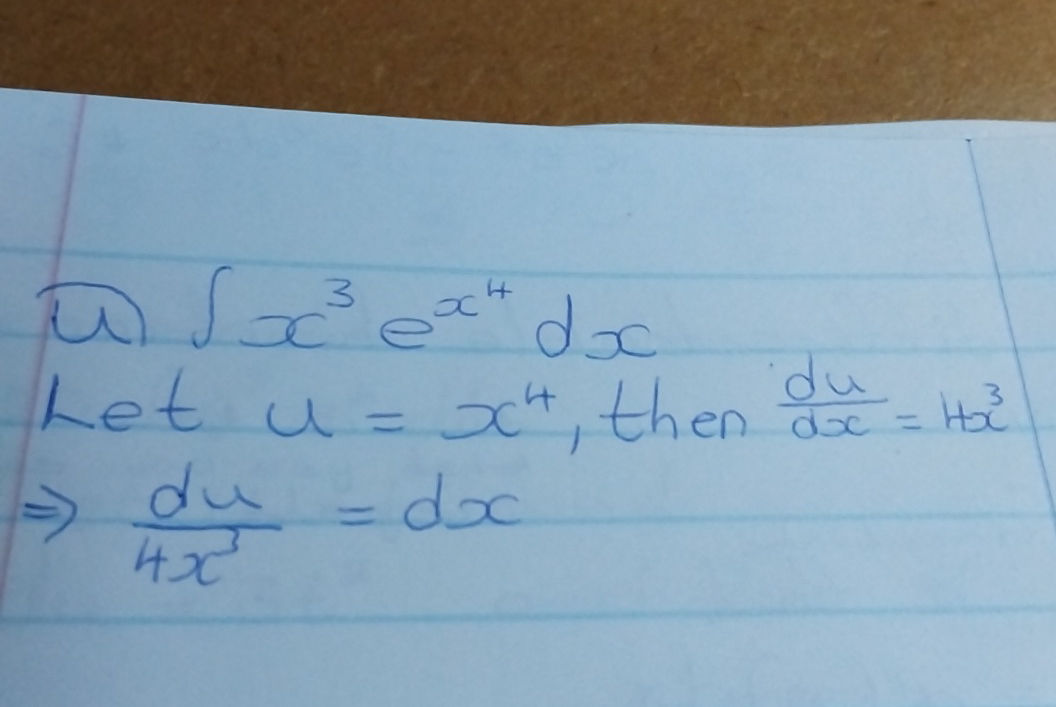 u) ∫ x³ e^{x⁴} dx
Let u = x⁴, then du/dx = 4x³
⇒ du/4x³ = dx